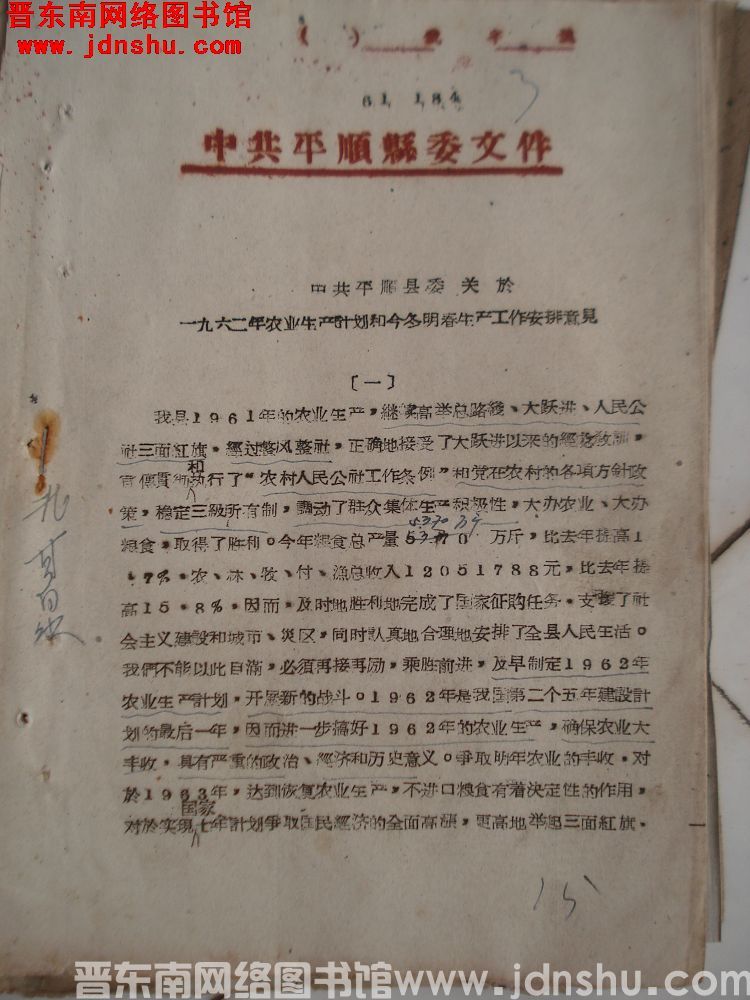 晋东南网络图书馆
www.jdnshu.com
61 184
中共平順縣委文件
中共平順县委关於
一九六二年农业生产計划和今冬明春生产工作安排意見
〔一〕
我县1961年的农业生产，継續高举总路綫、大跃进、人民公
社三面紅旗，經过整风整社，正确地接受了大跃进以来的經驗教訓，
宣傳貫彻和执行了“农村人民公社工作条例”和党在农村的各項方針政
策，稳定三級所有制，調动了群众集体生产积极性，大办农业、大办
5370万斤
粮食，取得了胜利。今年粮食总产量 万斤，比去年提高1
·7%，农、林、牧、付、漁总收入12051788元，比去年提
高15·8%，因而，及时地胜利地完成了国家征购任务，支援了社
会主义建設和城市、災区，同时认真地合理地安排了全县人民生活。
我們不能以此自滿，必須再接再励，乘胜前进，及早制定1962年
农业生产計划，开展新的战斗。1962年是我国第二个五年建設計
划的最后一年，因而进一步搞好1962年的农业生产，确保农业大
丰收，具有严重的政治、經济和历史意义。爭取明年农业的丰收，对
於1963年，达到恢复农业生产，不进口粮食有着决定性的作用，
对於实現国家七年計划爭取国民經济的全面高漲，更高地举起三面紅旗，
15
晋东南网络图书馆www.jdnshu.com